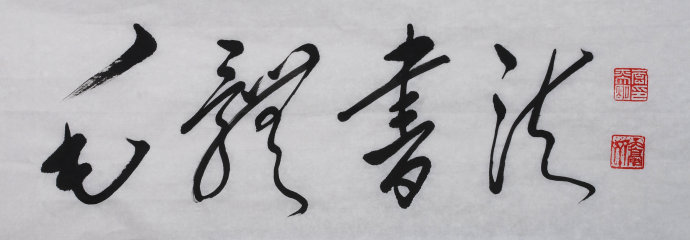 毛體書法